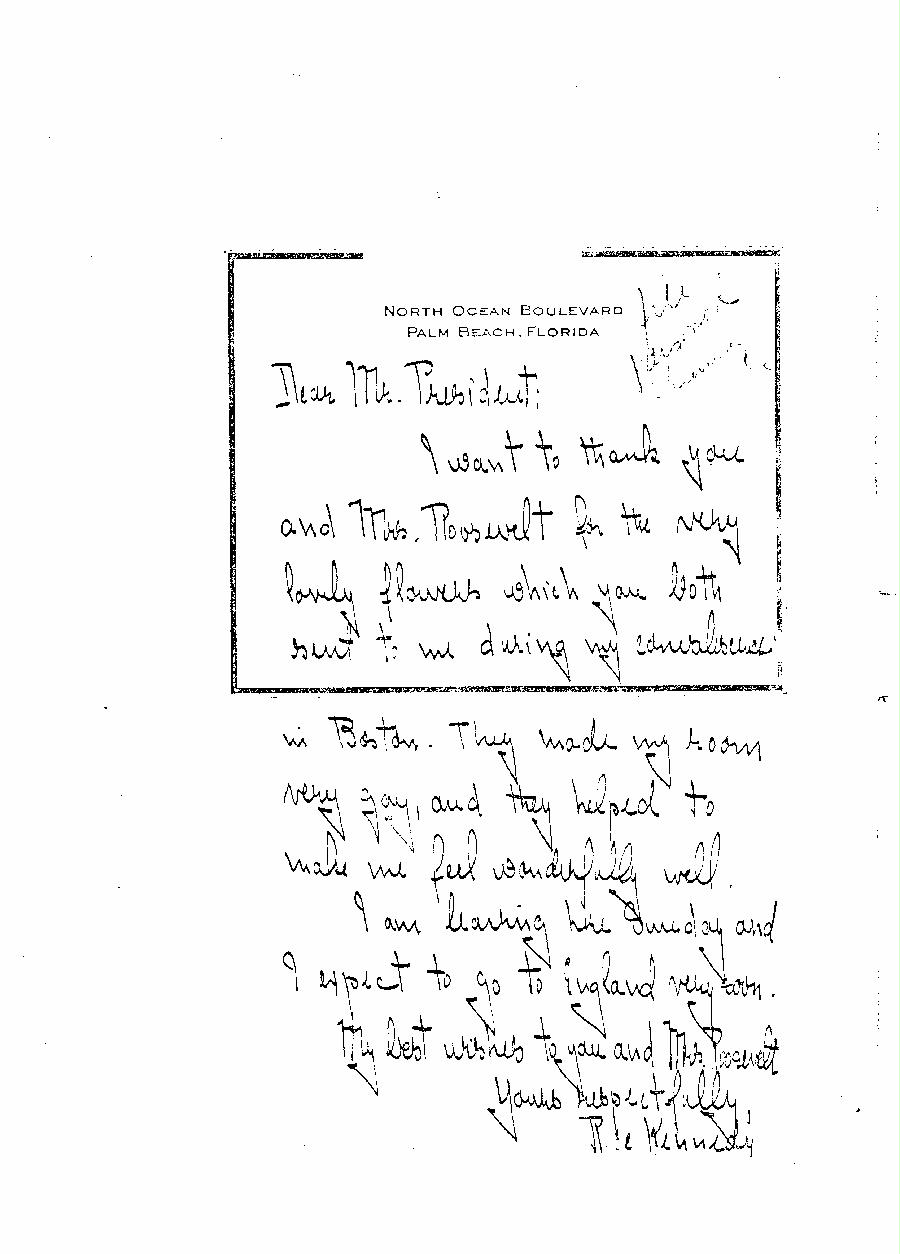 NORTH OCEAN BOULEVARD
PALM BEACH, FLORIDA
file
personal
Dear Mr. President;
I want to thank you
and Mrs. Roosevelt for the very
lovely flowers which you both
sent to me during my convalescence
in Boston. They made my room
very gay, and they helped to
make me feel wonderfully well.
I am leaving here Sunday and
I expect to go to England very soon.
My best wishes to you and Mrs Roosevelt
Yours respectfully,
Kennedy